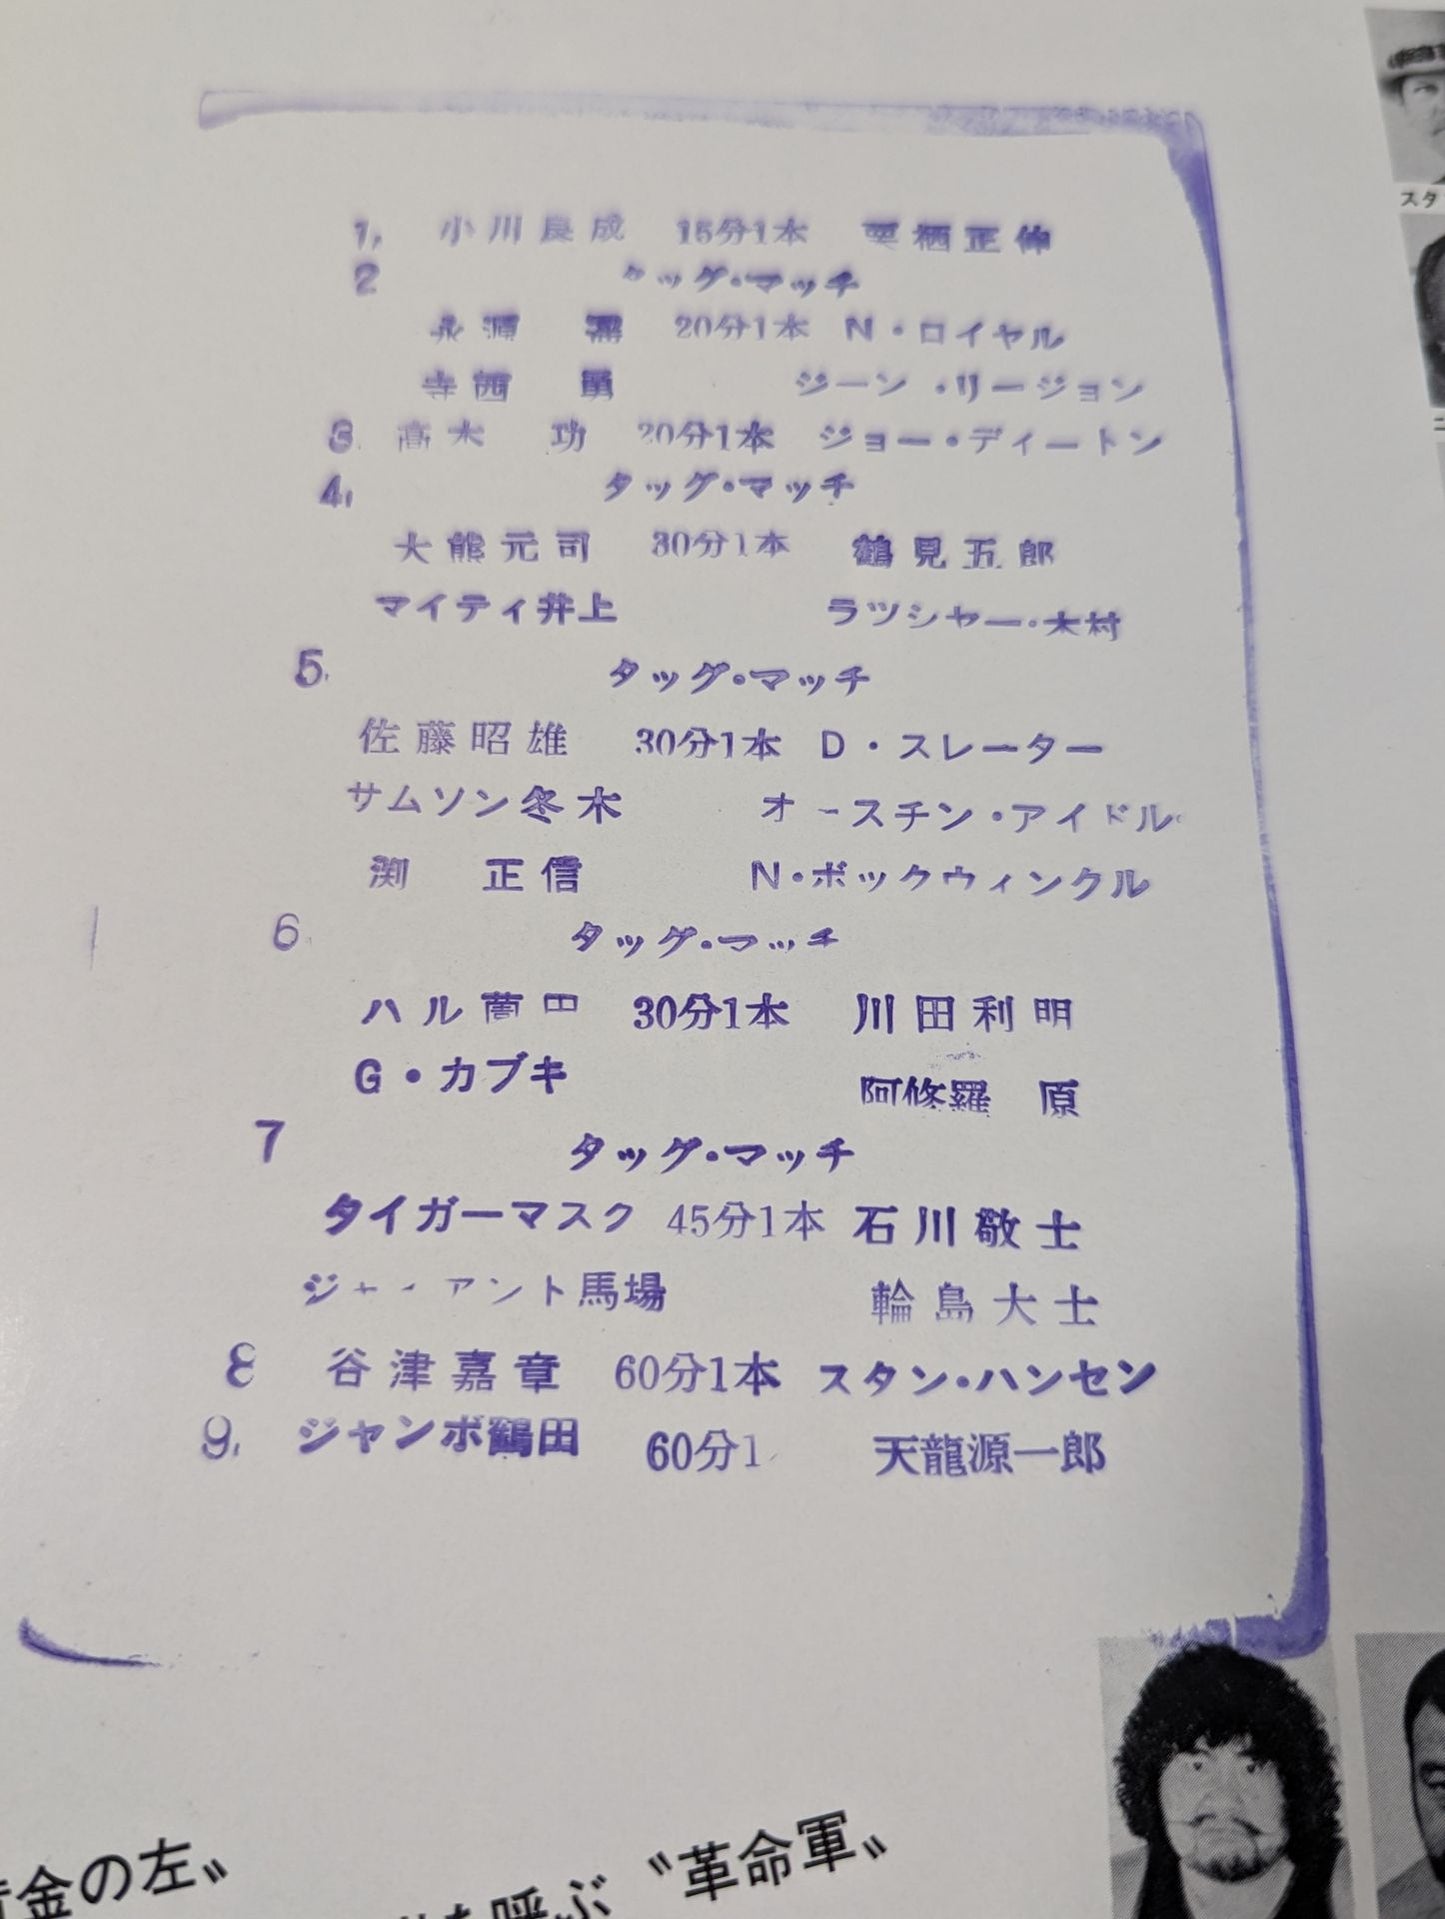 スタ
1, 小川良成 15分1本 栗栖正伸
2 タッグ・マッチ
永源 遥 20分1本 N・ロイヤル
寺西 勇 ジーン・リージョン
3. 高木 功 20分1本 ジョー・ディートン
4, タッグ・マッチ
大熊元司 30分1本 鶴見五郎
マイティ井上 ラツシャー・木村
5. タッグ・マッチ
佐藤昭雄 30分1本 D・スレーター
サムソン冬木 オースチン・アイドル
渕 正信 N・ボックウィンクル
6. タッグ・マッチ
ハル薗田 30分1本 川田利明
G・カブキ 阿修羅 原
7 タッグ・マッチ
タイガーマスク 45分1本 石川敬士
ジャイアント馬場 輪島大士
8 谷津嘉章 60分1本 スタン・ハンセン
9, ジャンボ鶴田 60分1 天龍源一郎
金の左〟
呼ぶ〝革命軍〟